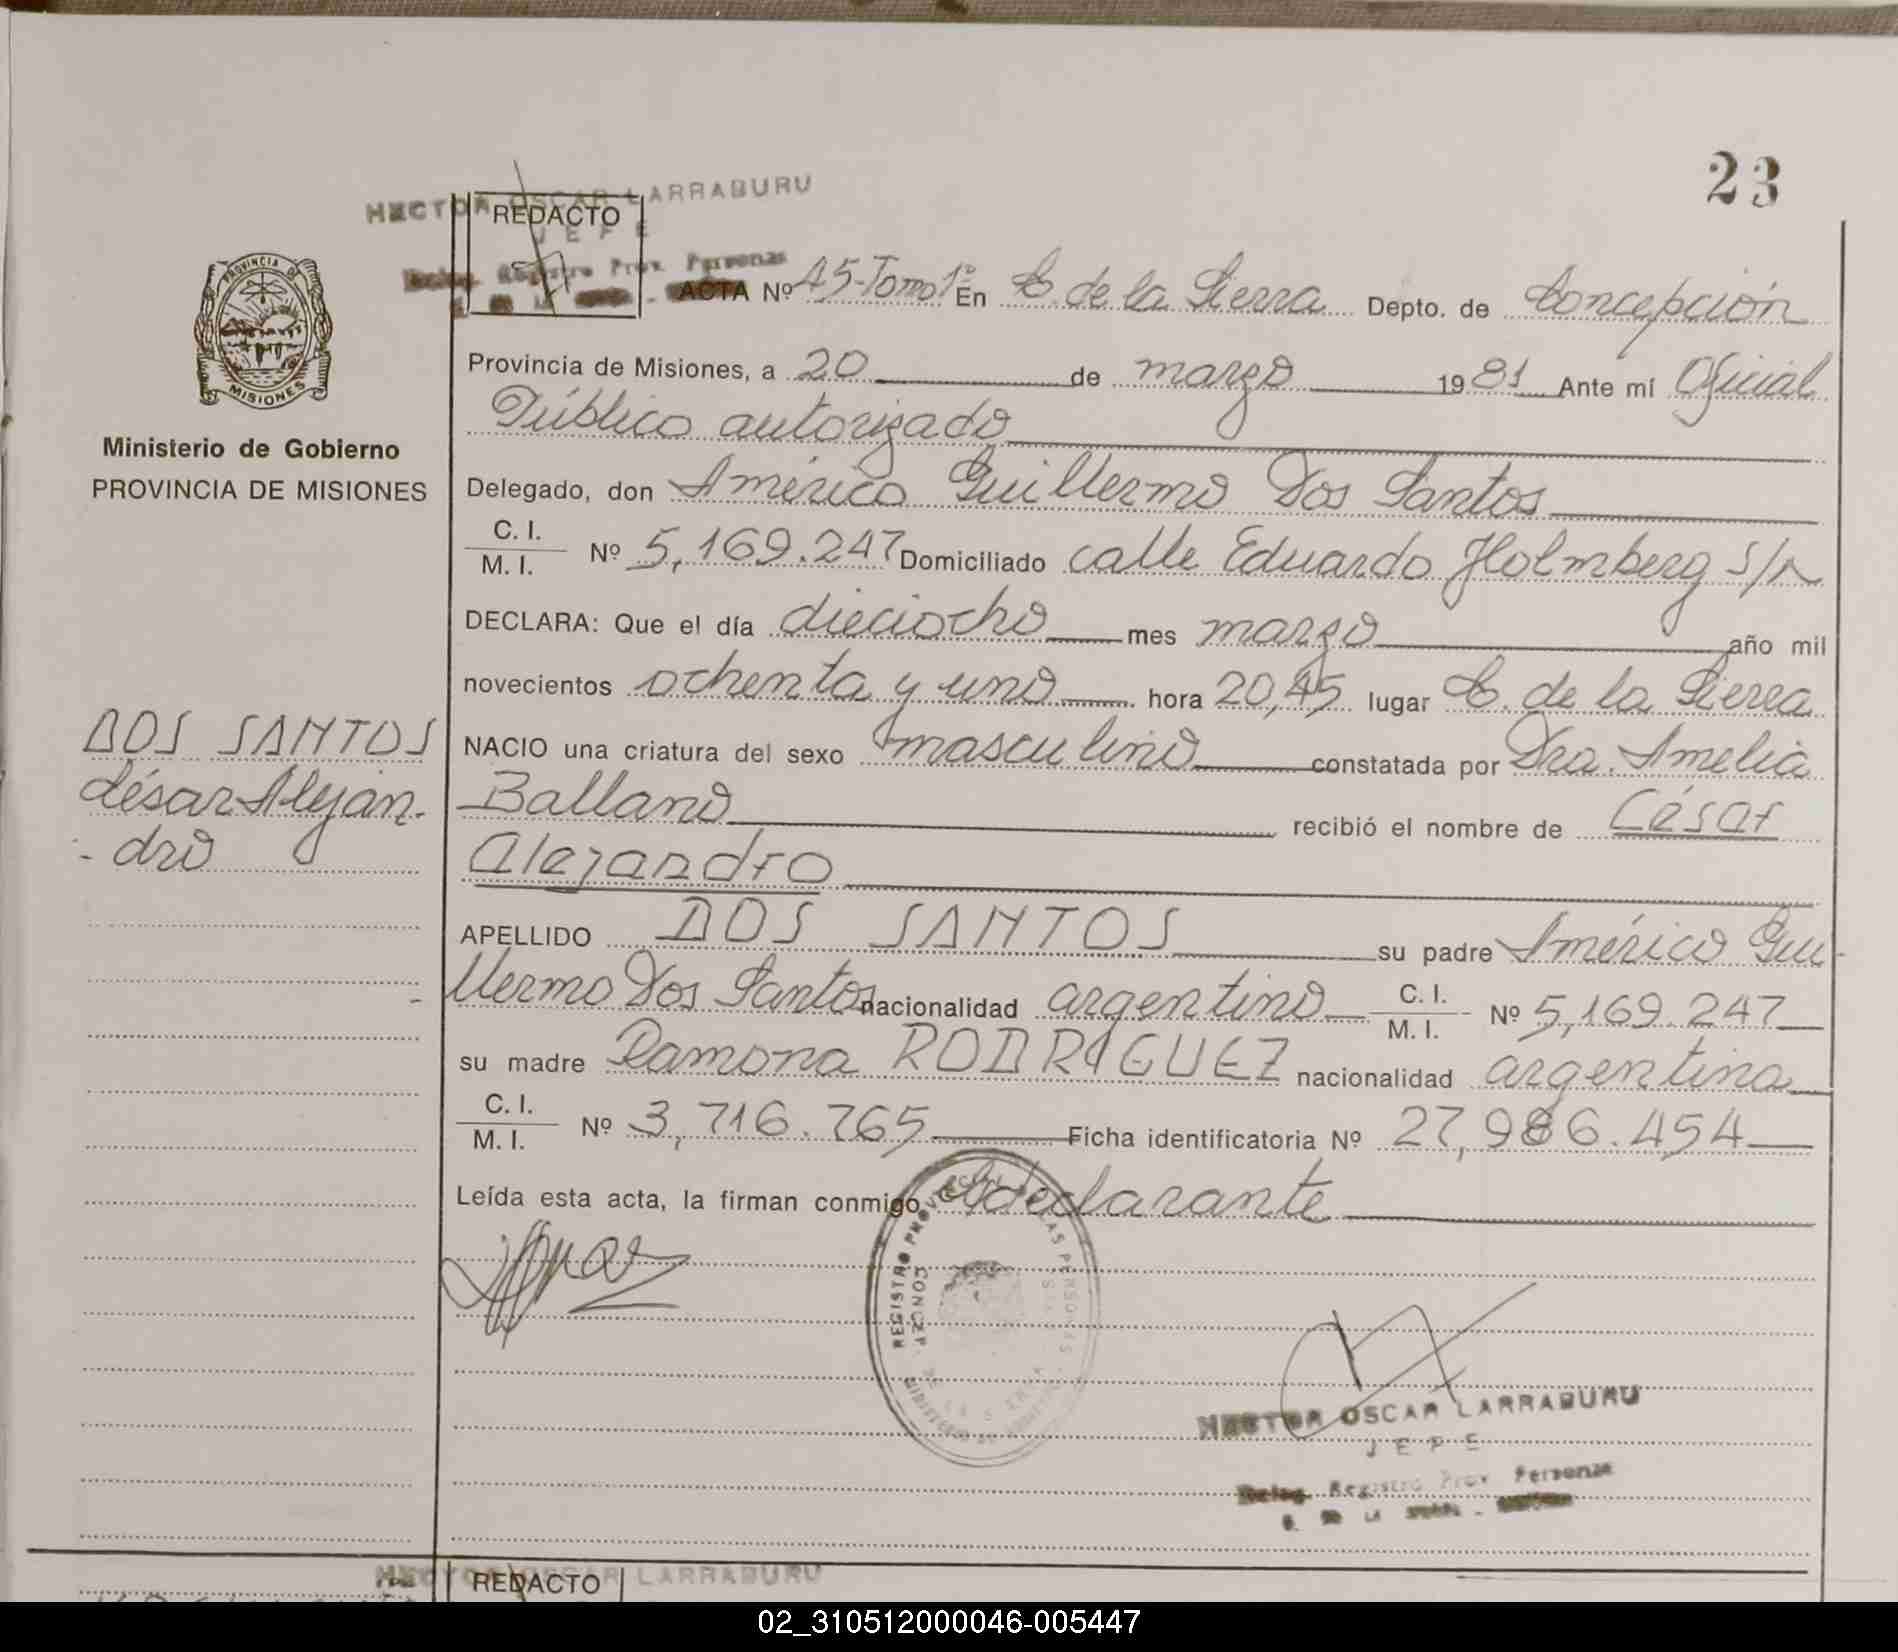 23
HECTOR OSCAR LARRABURU
REDACTO
JEFE
Registro Prov. Personas
ACTA Nº 45-Tomo 1º En C. de la Sierra Depto. de Concepción
PROVINCIA DE
MISIONES
Provincia de Misiones, a 20 de marzo 1981 Ante mí Oficial
Público autorizado
Ministerio de Gobierno
PROVINCIA DE MISIONES
Delegado, don Américo Guillermo Dos Santos
C. I.
M. I. Nº 5,169.247 Domiciliado calle Eduardo Holmberg S/N
DECLARA: Que el día dieciocho mes marzo año mil
novecientos ochenta y uno hora 20,45 lugar C. de la Sierra
DOS SANTOS
César Alejan-
-dro
NACIO una criatura del sexo masculino constatada por Dra. Amelia
Balland recibió el nombre de César
Alejandro
APELLIDO DOS SANTOS su padre Américo Gui-
-llermo Dos Santos nacionalidad argentino C. I.
M. I. Nº 5,169.247
su madre Ramona RODRIGUEZ nacionalidad argentina
C. I.
M. I. Nº 3,716.765 Ficha identificatoria Nº 27,986.454
Leída esta acta, la firman conmigo el declarante
REGISTRO PROVINCIAL DE LAS PERSONAS
HECTOR OSCAR LARRABURU
JEFE
Deleg. Registro Prov. Personas
HECTOR OSCAR LARRABURU
REDACTO
02_310512000046-005447